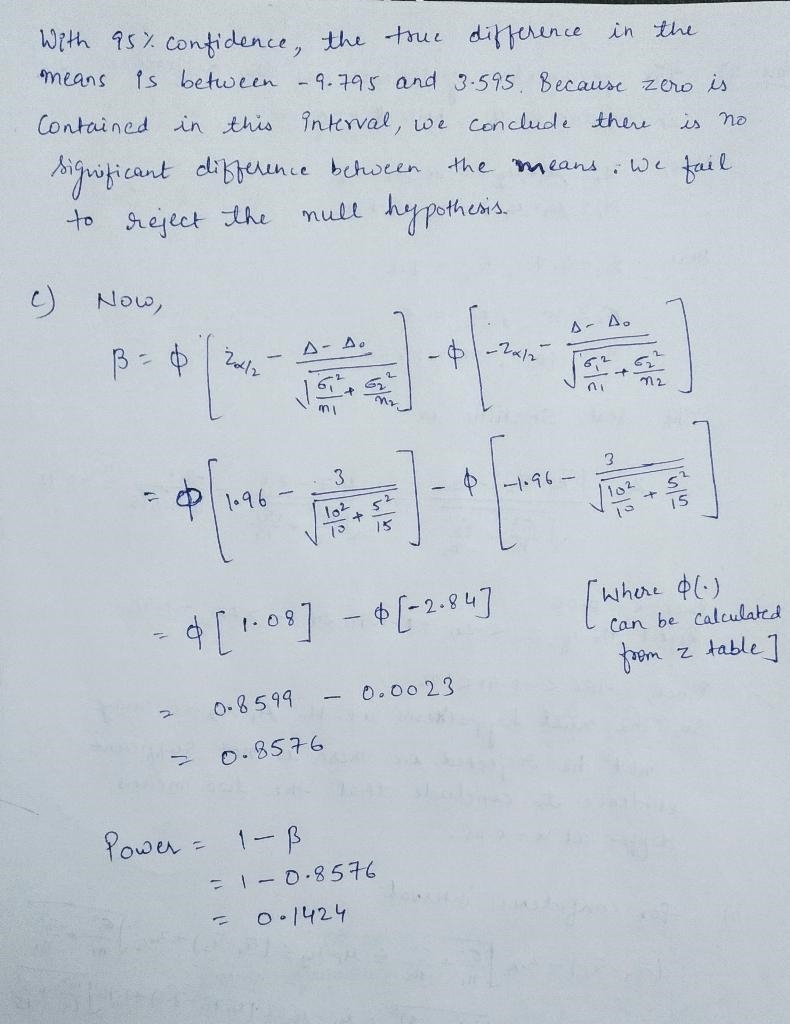 With 95% confidence, the true difference in the
means is between -9.795 and 3.595. Because zero is
Contained in this interval, we conclude there is no
significant difference between the means. We fail
to reject the null hypothesis.
c) Now,
β = ϕ [ Zα/2 - (Δ - Δ0) / √(σ1²/n1 + σ2²/n2) ] - ϕ [ -Zα/2 - (Δ - Δ0) / √(σ1²/n1 + σ2²/n2) ]
= ϕ [ 1.96 - 3 / √(10²/10 + 5²/15) ] - ϕ [ -1.96 - 3 / √(10²/10 + 5²/15) ]
= ϕ [1.08] - ϕ [-2.84] [Where ϕ(.)
can be calculated
from z table]
= 0.8599 - 0.0023
= 0.8576
Power = 1 - β
= 1 - 0.8576
= 0.1424